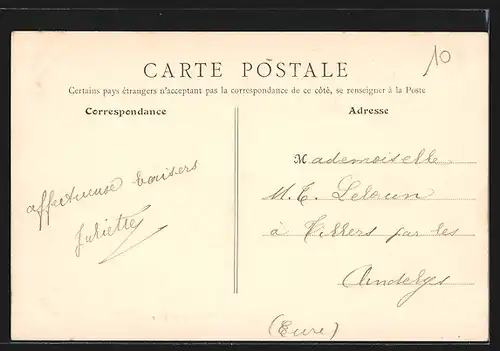 10
CARTE POSTALE
Certains pays étrangers n'acceptant pas la correspondance de ce côté, se renseigner à la Poste
Correspondance
Adresse
Mademoiselle
M. T.
à Villers par les
Andelys
(Eure)
affectueuse baisers
Juliette